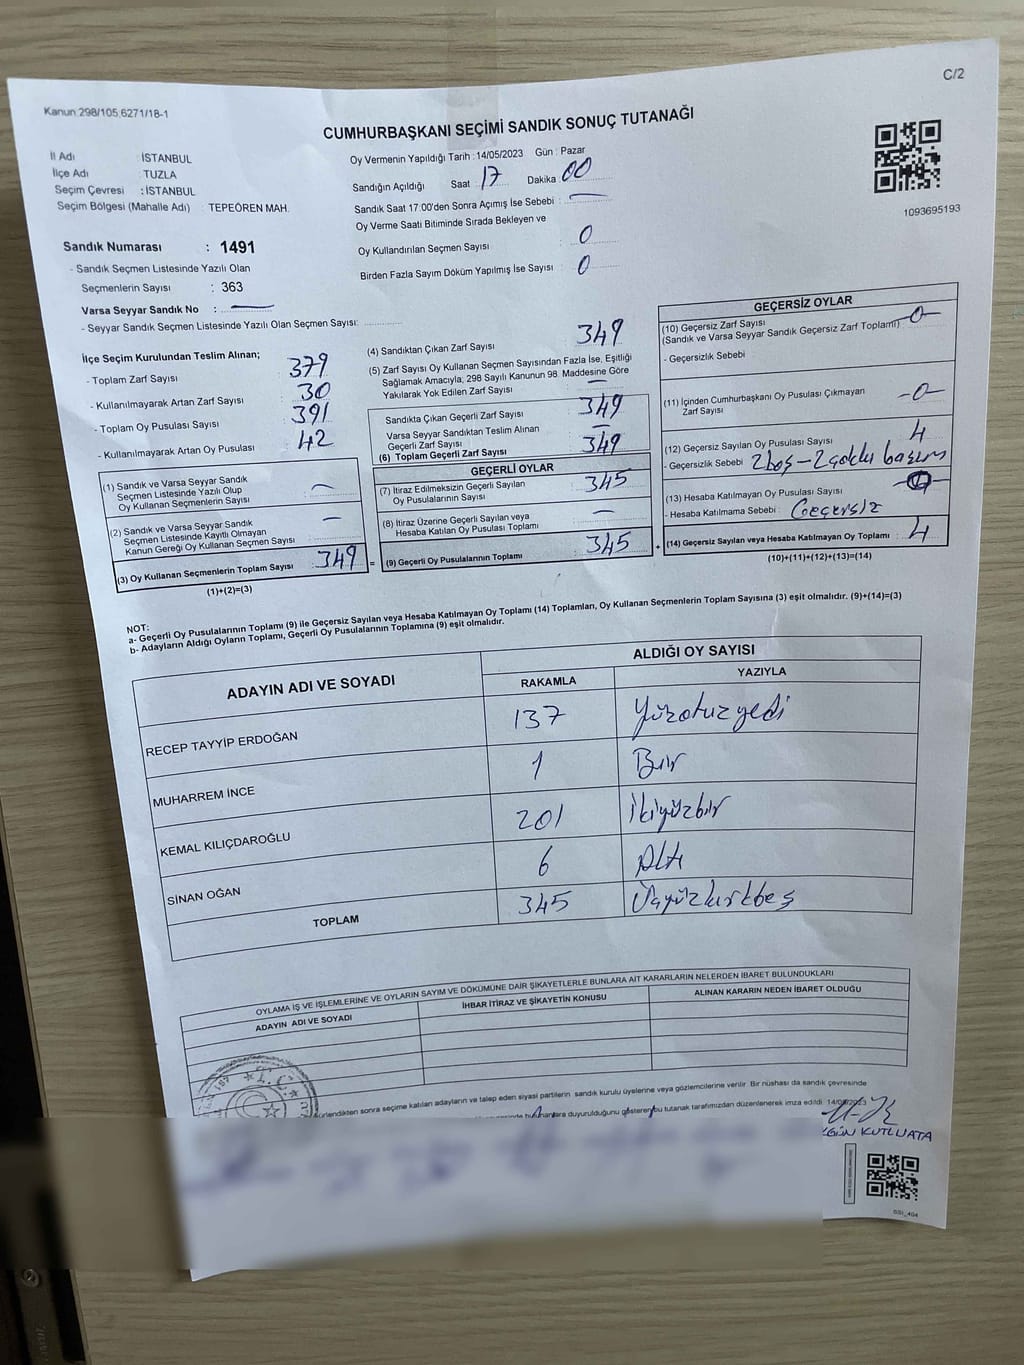 C/2
Kanun:298/105,6271/18-1
CUMHURBAŞKANI SEÇİMİ SANDIK SONUÇ TUTANAĞI
İl Adı : İSTANBUL
İlçe Adı : TUZLA
Seçim Çevresi : İSTANBUL
Seçim Bölgesi (Mahalle Adı) : TEPEÖREN MAH.
Oy Vermenin Yapıldığı Tarih : 14/05/2023 Gün : Pazar
Sandığın Açıldığı Saat 17 Dakika 00
Sandık Saat 17:00'den Sonra Açımış İse Sebebi : —
Oy Verme Saati Bitiminde Sırada Bekleyen ve
Oy Kullandırılan Seçmen Sayısı : 0
Birden Fazla Sayım Döküm Yapılmış İse Sayısı : 0
1093695193
Sandık Numarası : 1491
- Sandık Seçmen Listesinde Yazılı Olan
Seçmenlerin Sayısı : 363
Varsa Seyyar Sandık No : —
- Seyyar Sandık Seçmen Listesinde Yazılı Olan Seçmen Sayısı:
İlçe Seçim Kurulundan Teslim Alınan;
- Toplam Zarf Sayısı : 379
- Kullanılmayarak Artan Zarf Sayısı : 30
- Toplam Oy Pusulası Sayısı : 391
- Kullanılmayarak Artan Oy Pusulası : 42
(1) Sandık ve Varsa Seyyar Sandık
Seçmen Listesinde Yazılı Olup
Oy Kullanan Seçmenlerin Sayısı : —
(2) Sandık ve Varsa Seyyar Sandık
Seçmen Listesinde Kayıtlı Olmayan
Kanun Gereği Oy Kullanan Seçmen Sayısı : —
(3) Oy Kullanan Seçmenlerin Toplam Sayısı : 349
(1)+(2)=(3)
(4) Sandıktan Çıkan Zarf Sayısı : 349
(5) Zarf Sayısı Oy Kullanan Seçmen Sayısından Fazla İse, Eşitliği
Sağlamak Amacıyla, 298 Sayılı Kanunun 98. Maddesine Göre
Yakılarak Yok Edilen Zarf Sayısı : —
Sandıkta Çıkan Geçerli Zarf Sayısı : 349
Varsa Seyyar Sandıktan Teslim Alınan
Geçerli Zarf Sayısı : —
(6) Toplam Geçerli Zarf Sayısı : 349
GEÇERLİ OYLAR
(7) İtiraz Edilmeksizin Geçerli Sayılan
Oy Pusulalarının Sayısı : 345
(8) İtiraz Üzerine Geçerli Sayılan veya
Hesaba Katılan Oy Pusulası Toplamı : —
= (9) Geçerli Oy Pusulalarının Toplamı : 345
GEÇERSİZ OYLAR
(10) Geçersiz Zarf Sayısı
(Sandık ve Varsa Seyyar Sandık Geçersiz Zarf Toplamı) -0-
- Geçersizlik Sebebi :
(11) İçinden Cumhurbaşkanı Oy Pusulası Çıkmayan
Zarf Sayısı : -0-
(12) Geçersiz Sayılan Oy Pusulası Sayısı : 4
- Geçersizlik Sebebi : 2 boş - 2 çoklu basım
(13) Hesaba Katılmayan Oy Pusulası Sayısı :
- Hesaba Katılmama Sebebi : Geçersiz
+ (14) Geçersiz Sayılan veya Hesaba Katılmayan Oy Toplamı : 4
(10)+(11)+(12)+(13)=(14)
NOT:
a- Geçerli Oy Pusulalarının Toplamı (9) ile Geçersiz Sayılan veya Hesaba Katılmayan Oy Toplamı (14) Toplamları, Oy Kullanan Seçmenlerin Toplam Sayısına (3) eşit olmalıdır. (9)+(14)=(3)
b- Adayların Aldığı Oyların Toplamı, Geçerli Oy Pusulalarının Toplamına (9) eşit olmalıdır.
ADAYIN ADI VE SOYADI ALDIĞI OY SAYISI
RAKAMLA YAZIYLA
RECEP TAYYİP ERDOĞAN 137 Yüzotuzyedi
MUHARREM İNCE 1 Bir
KEMAL KILIÇDAROĞLU 201 İkiyüzbir
SİNAN OĞAN 6 Altı
TOPLAM 345 Üçyüzkırkbeş
OYLAMA İŞ VE İŞLEMLERİNE VE OYLARIN SAYIM VE DÖKÜMÜNE DAİR ŞİKAYETLERLE BUNLARA AİT KARARLARIN NELERDEN İBARET BULUNDUKLARI
ADAYIN ADI VE SOYADI İHBAR İTİRAZ VE ŞİKAYETİN KONUSU ALINAN KARARIN NEDEN İBARET OLDUĞU
T.C.
sonra seçime katılan adayların ve talep eden siyasi partilerin sandık kurulu üyelerine veya gözlemcilerine verilir. Bir nüshası da sandık çevresinde
duyurulduğunu gösteren bu tutanak tarafımızdan düzenlenerek imza edildi. 14/05/2023
KUTLUATA